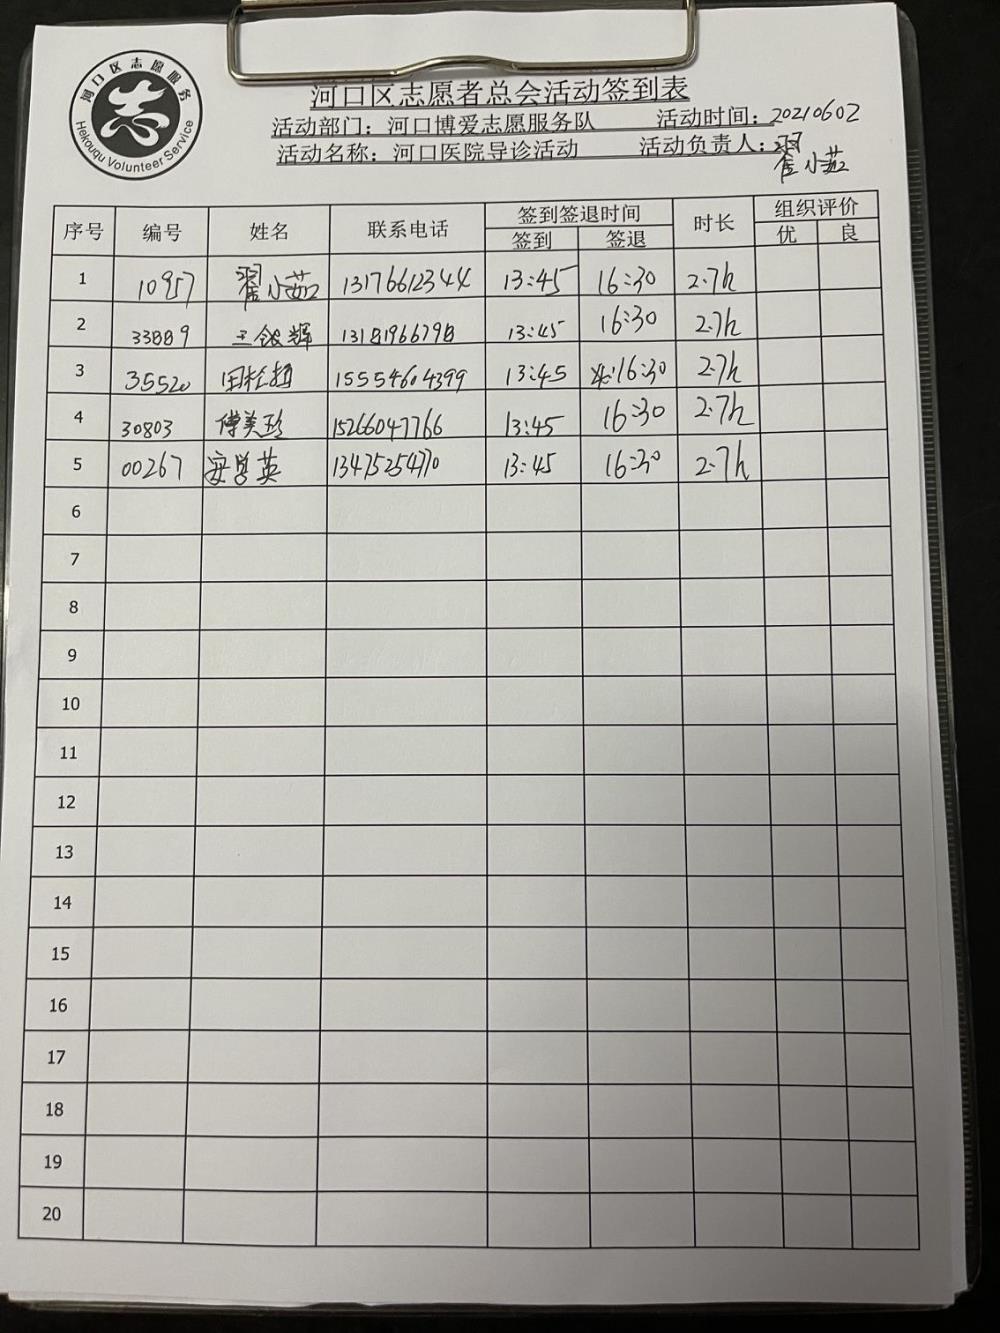 河口区志愿服务
Hekouqu Volunteer Service
河口区志愿者总会活动签到表
活动部门：河口博爱志愿服务队 活动时间：20210602
活动名称：河口医院导诊活动 活动负责人：翟小茹
序号 编号 姓名 联系电话 签到签退时间 时长 组织评价
签到 签退 优 良
1 10957 翟小茹 13176612344 13:45 16:30 2.7h
2 33889 王银辉 13181966798 13:45 16:30 2.7h
3 35520 田 15554604399 13:45 16:30 2.7h
4 30803 傅美玲 15266047766 13:45 16:30 2.7h
5 00267 安学英 13475254770 13:45 16:30 2.7h
6
7
8
9
10
11
12
13
14
15
16
17
18
19
20